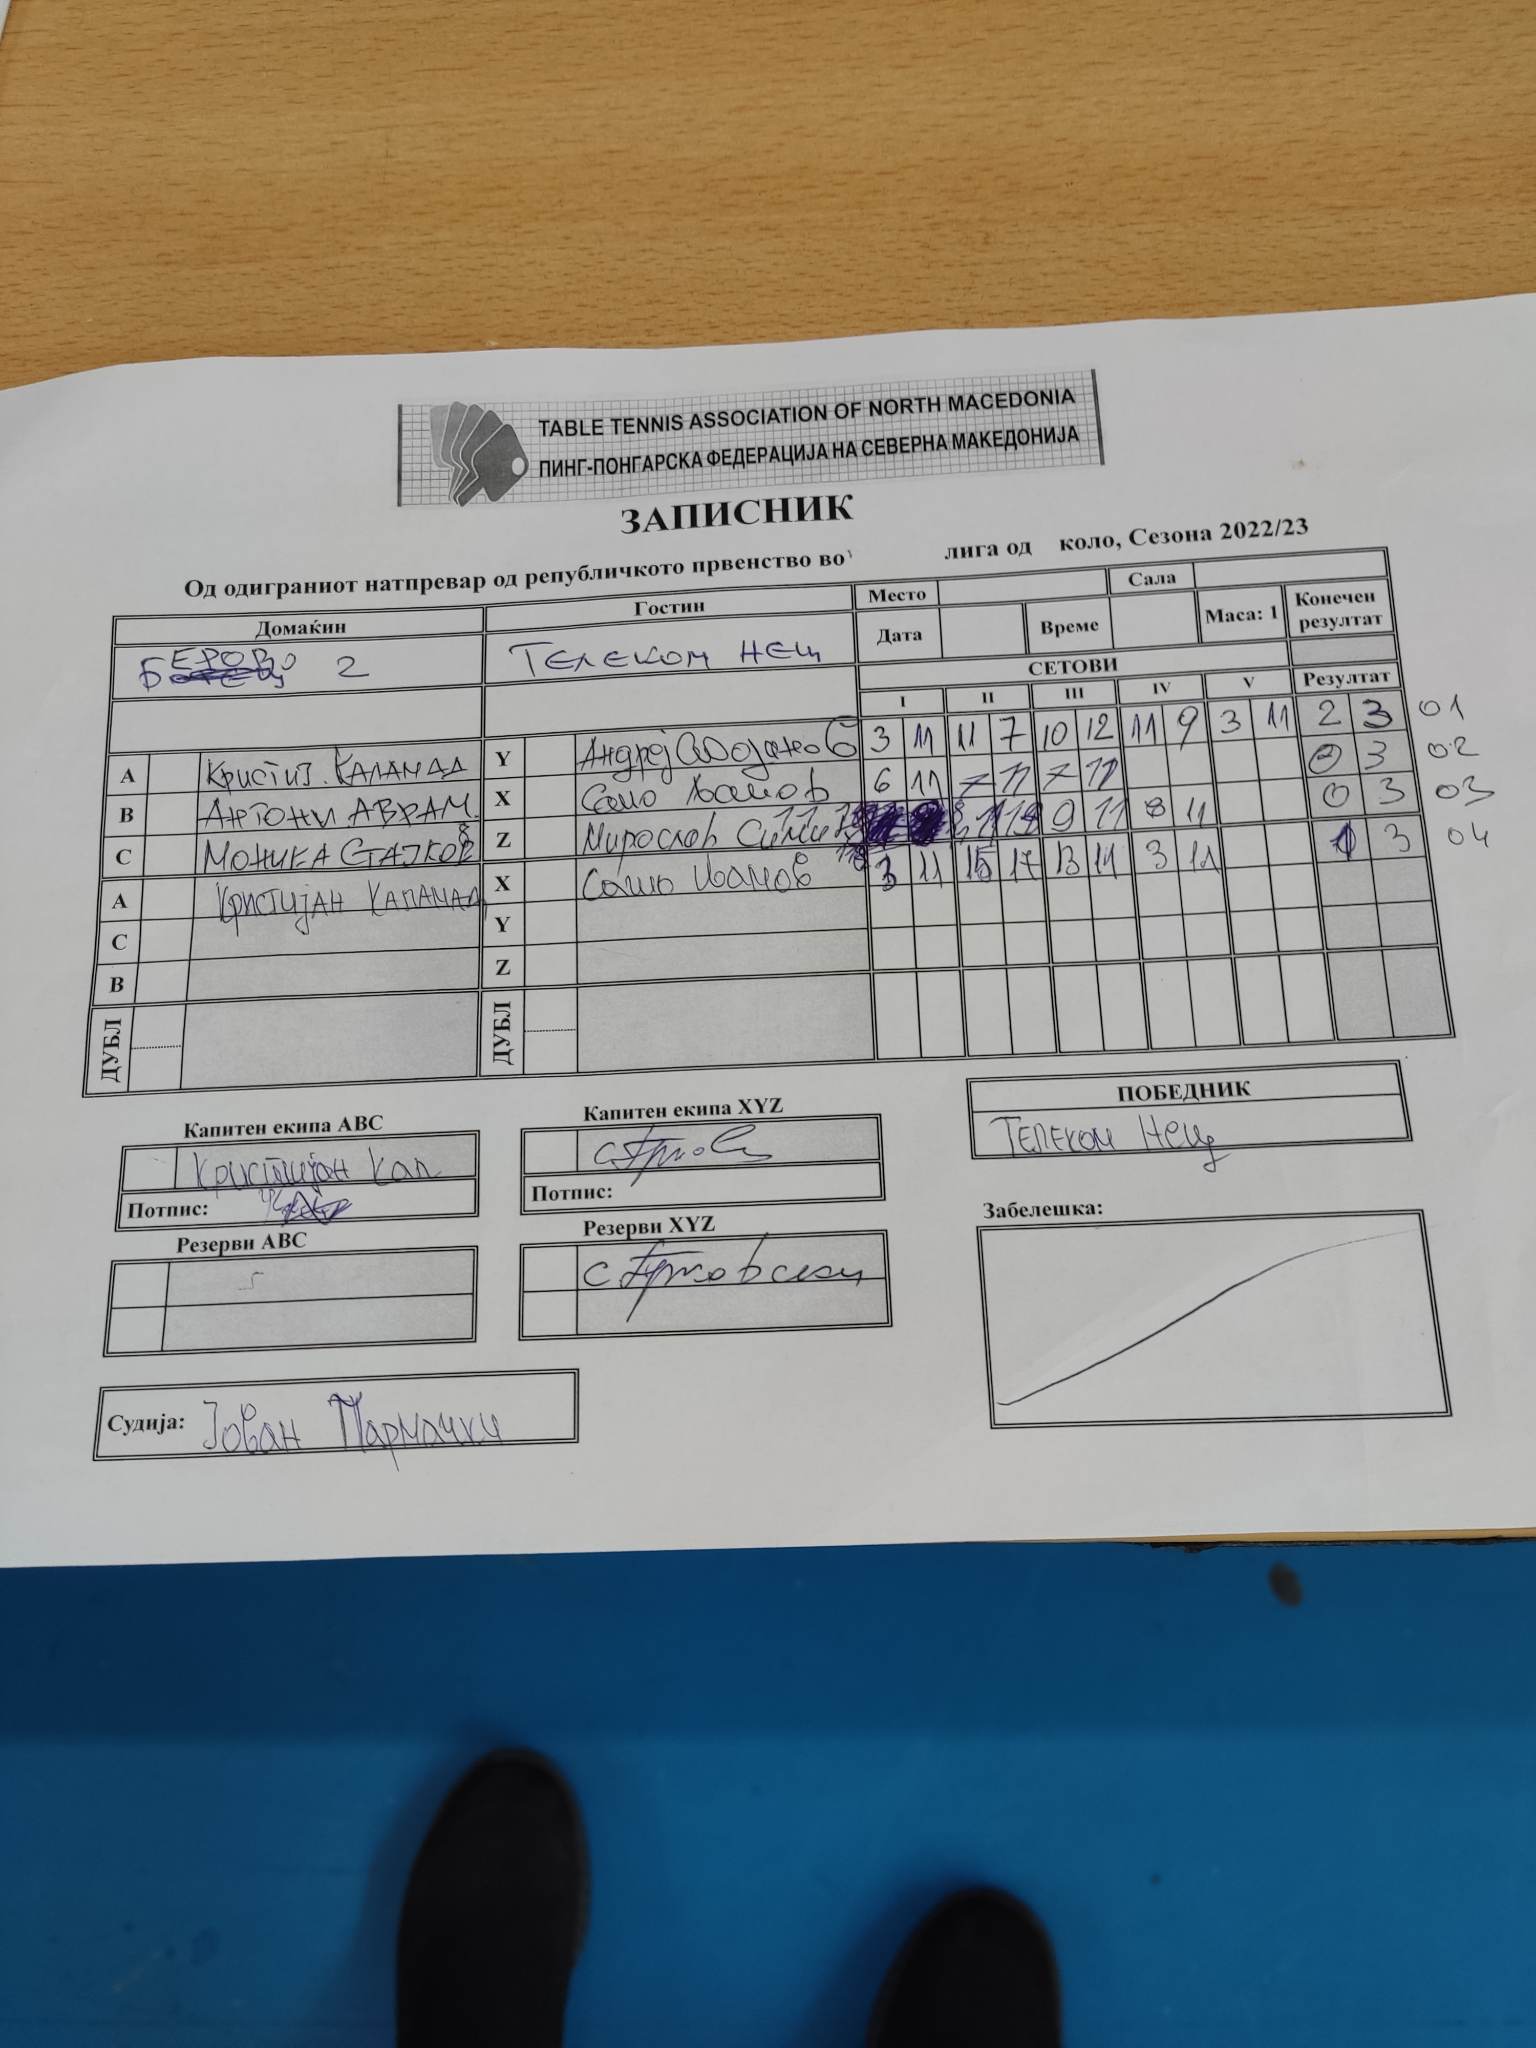 TABLE TENNIS ASSOCIATION OF NORTH MACEDONIA
ПИНГ-ПОНГАРСКА ФЕДЕРАЦИЈА НА СЕВЕРНА МАКЕДОНИЈА
ЗАПИСНИК
Од одиграниот натпревар од републичкото првенство во лига од коло, Сезона 2022/23
Домаќин Гостин Место Сала
БЕРОВО 2 ТЕЛЕКОМ НЕЦ Дата Време Маса: 1 Конечен резултат
СЕТОВИ
I II III IV V Резултат
A Кристиј. КАЛАМАД Y Андреј 3 11 11 7 10 12 11 9 3 11 2 3 01
B АНТОНИ АВРАМ. X Сашо Иванов 6 11 7 11 7 11 0 3 02
C МОНИКА Z Мирослав 9 11 8 11 0 3 03
A Кристијан КАЛАМАД X Сашо Иванов 3 11 15 17 13 11 3 11 1 3 04
C Y
B Z
ДУБЛ ДУБЛ
Капитен екипа ABC Капитен екипа XYZ ПОБЕДНИК
Кристијан Кал ТЕЛЕКОМ НЕЦ
Потпис: Потпис:
Резерви ABC Резерви XYZ Забелешка:
Судија: Јован Пармачки